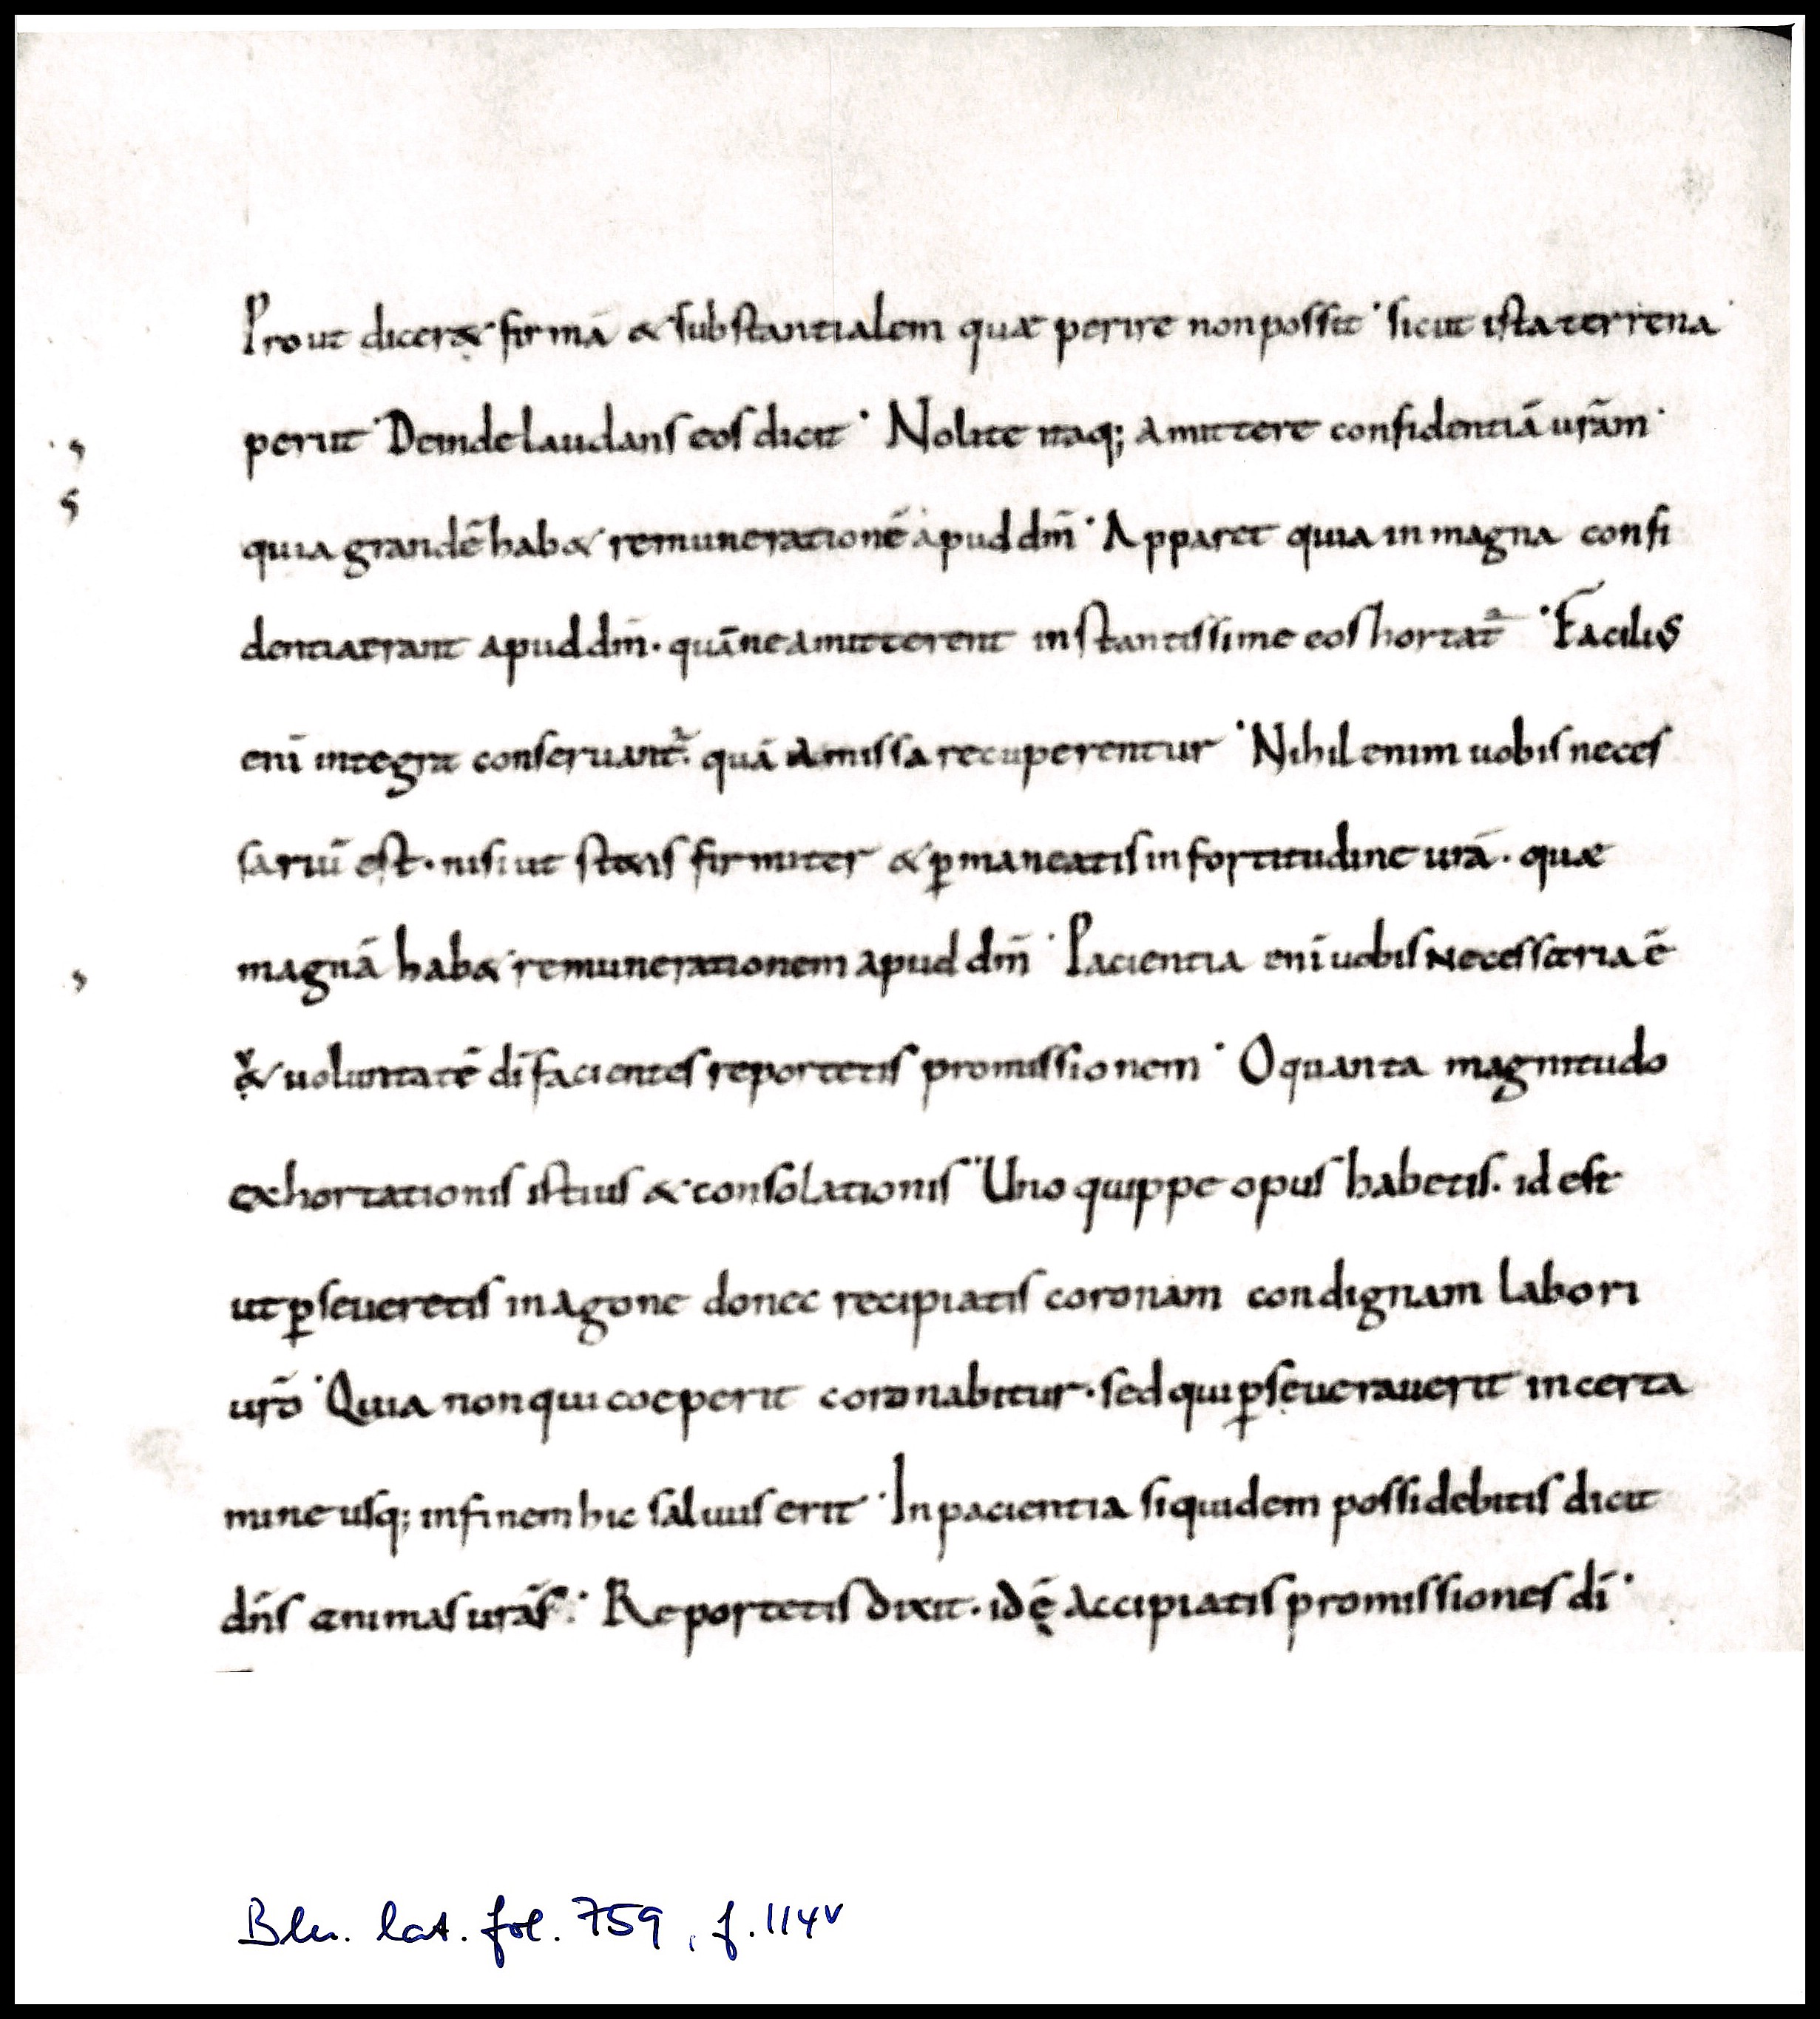 Prout dicer& firmā & substantialem quæ perire non possit · sicut ista terrena
periit · Deinde laudans eos dicit · Nolite itaq; amittere confidentiā urām ·
quia grandē hab& remunerationē apud dm̄ · Apparet quia in magna confi
dentia erant apud dm̄ · quā ne amitterent instantissime eos hortat᷑ · Facilius
enī integra conseruant᷑ · quā amissa recuperentur · Nihil enim uobis neces
sariū est · nisi ut st&is firmiter & ꝑmaneatis in fortitudine urā · quæ
magnā hab& remunerationem apud dm̄ · Pacientia enī uobis necessaria ē
& uoluntatē dī facientes reportetis promissionem · O quanta magnitudo
exhortationis istius & consolationis · Uno quippe opus habetis · id est
ut ꝑseueretis in agone donec recipiatis coronam condignam labori
urō · Quia non qui coeperit coronabitur · sed qui ꝑseuerauerit in certa
mine usq; in finem hic saluus erit · In pacientia siquidem possidebitis dicit
dn̄s animas urās · Reportetis dixit · id ē accipiatis promissiones dī ·
Bln. lat. fol. 759, f. 114v